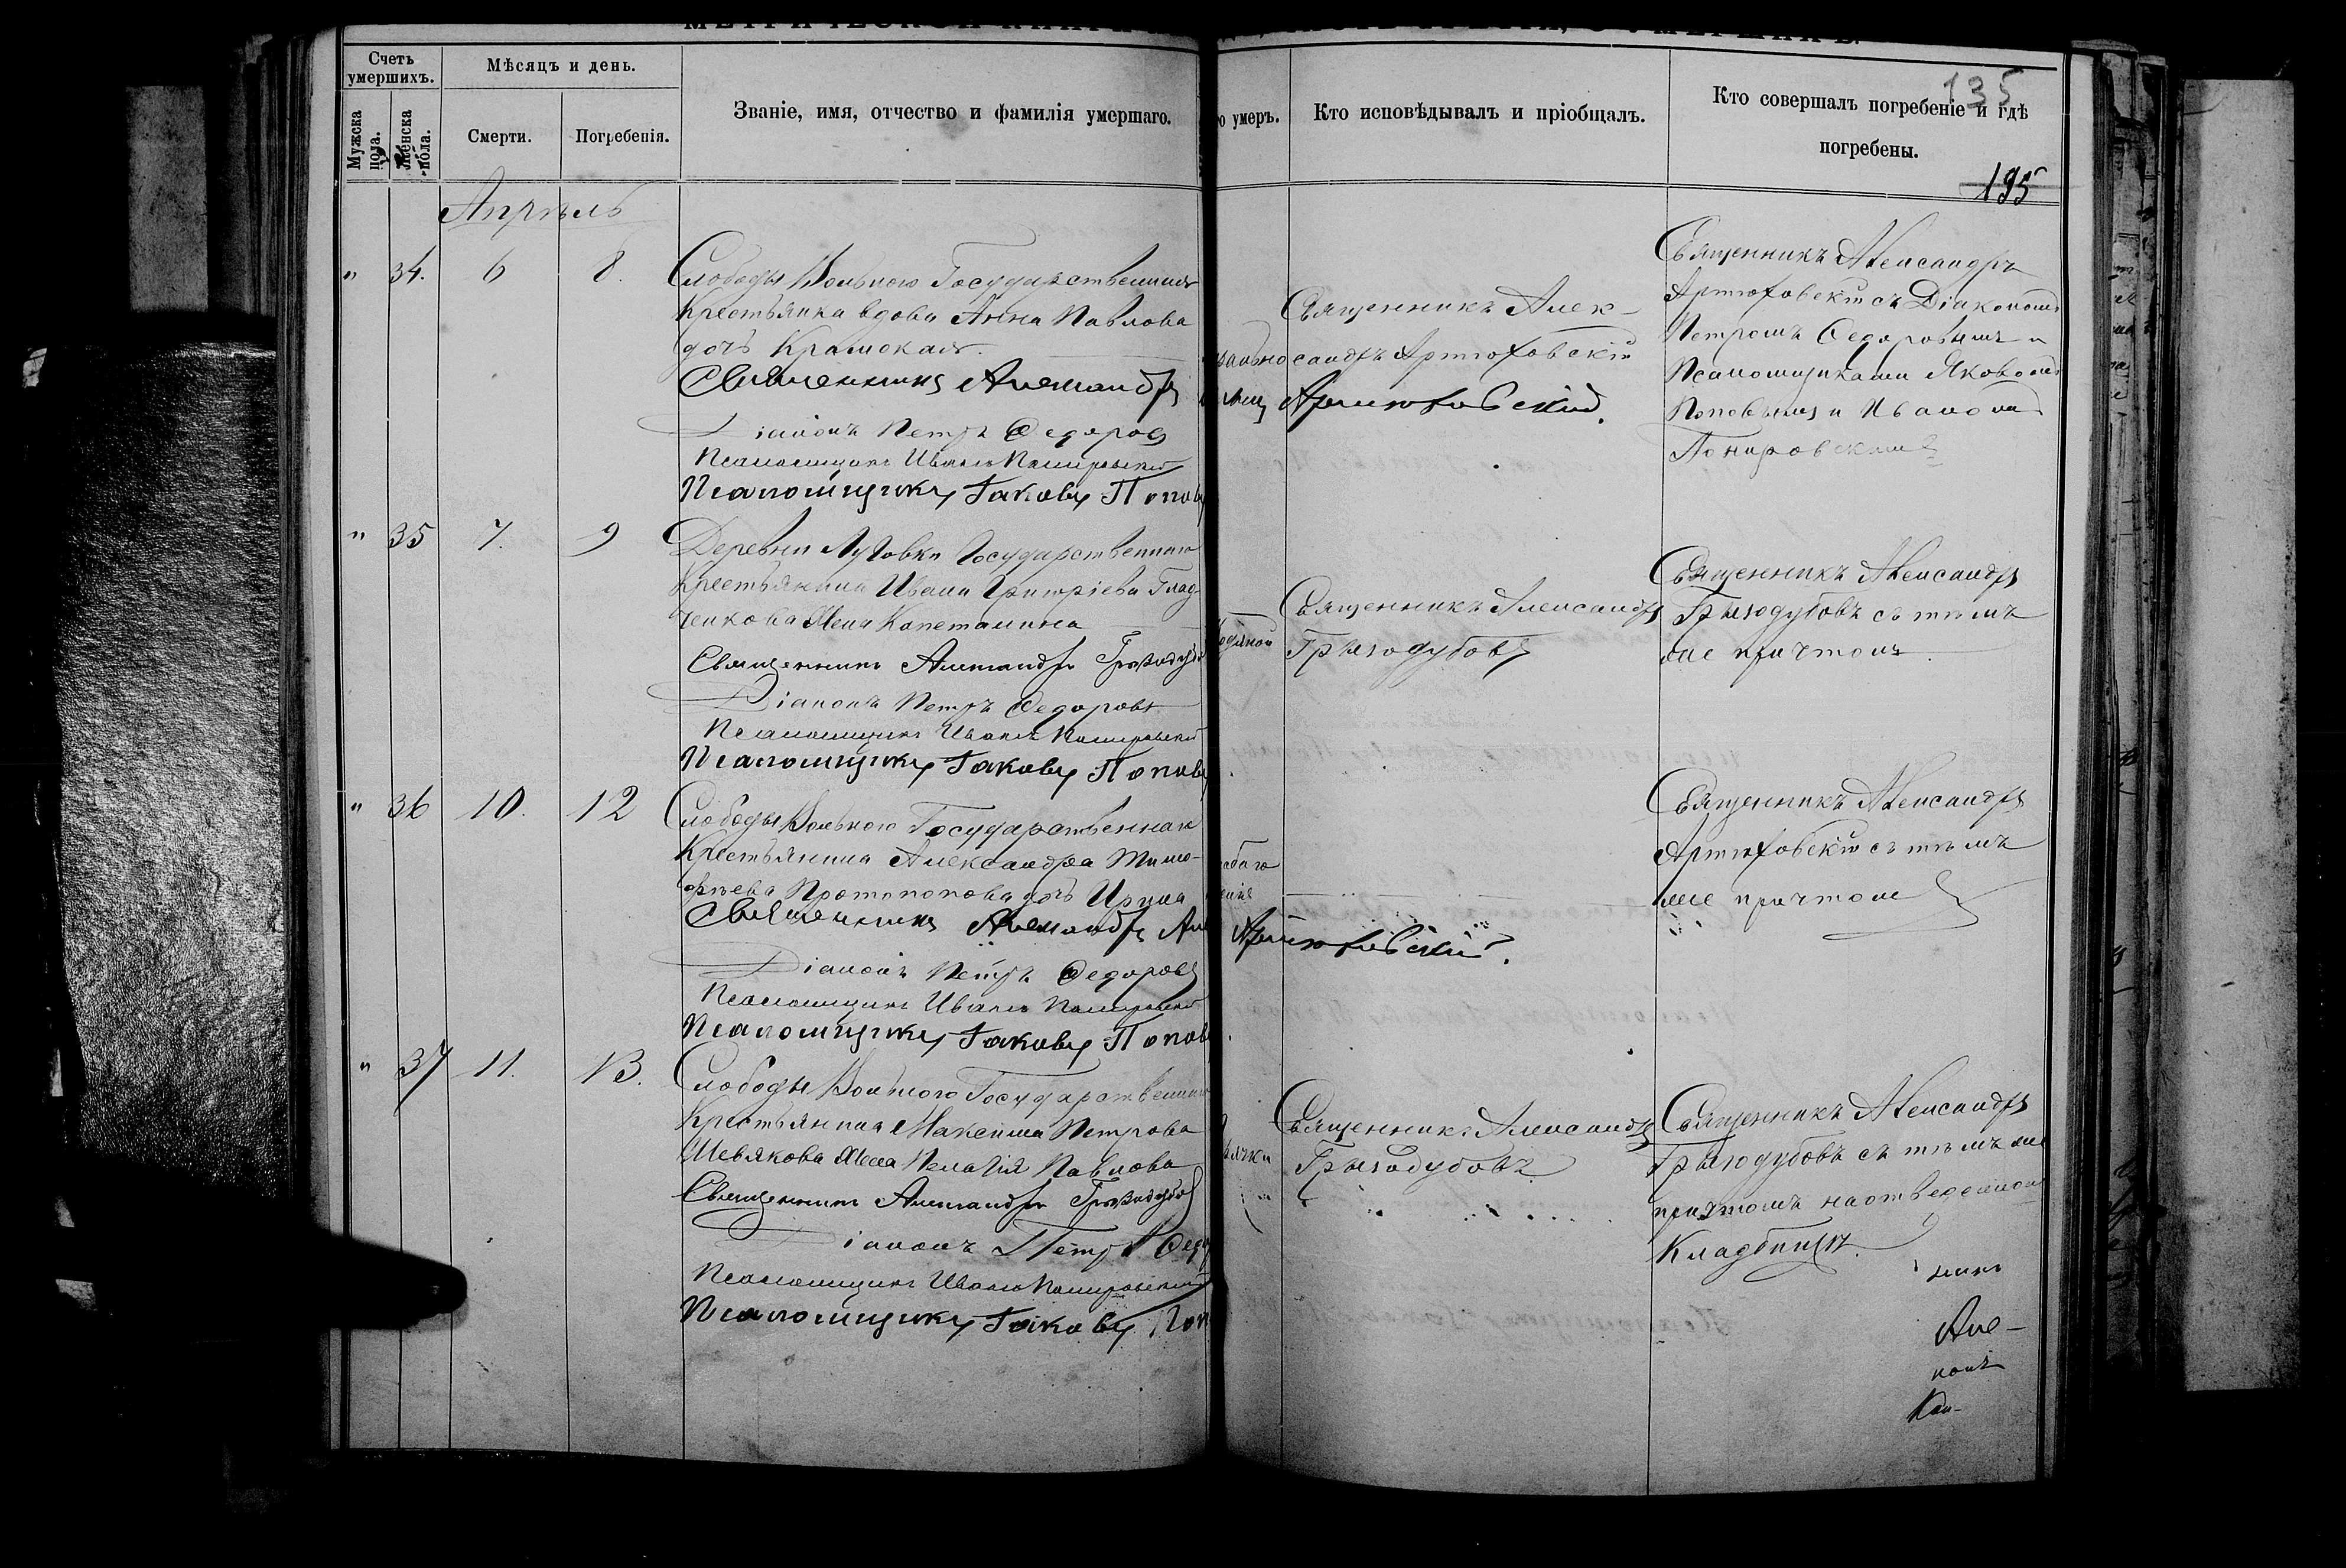 Счетъ умершихъ.
Мужска пола.
Женска пола.
Мѣсяцъ и день.
Смерти.
Погребенія.
Званіе, имя, отчество и фамилія умершаго.
умеръ.
Кто исповѣдывалъ и пріобщалъ.
Кто совершалъ погребеніе и гдѣ
погребены.
135
195
Апрѣль
" 34. 6 8.
Слободы Вольного Государственная
Крестьянка вдова Анна Павлова
дочь Крамская
Священникъ Александръ
Діаконъ Петръ Ѳедоровъ
Псаломщикъ Иванъ
Псаломщикъ Іаковъ Поповъ
Священникъ Алек-
сандръ Артюховскій
Артюховскій.
Священникъ Александръ
Артюховскій съ Діакономъ
Петромъ Ѳедоровымъ и
Псаломщиками Яковомъ
Поповымъ и Иваномъ
" 35 7. 9
Деревни Луговки Государственного
Крестьянина Ивана Григоріева Глад-
ченкова жена
Священникъ Александръ Грызодубовъ
Діаконъ Петръ Ѳедоровъ
Псаломщикъ Иванъ
Псаломщикъ Іаковъ Поповъ
Священникъ Александръ
Грызодубовъ
Священникъ Александръ
Грызодубовъ съ тѣмъ
же причтомъ
" 36 10. 12
Слободы Вольного Государственнаго
Крестьянина Александра Тимо-
фѣева Протопопова дочь Ирина
Священникъ Александръ
Артюховскій.
Діаконъ Петръ Ѳедоровъ
Псаломщикъ Иванъ
Псаломщикъ Іаковъ Поповъ
Священникъ Александръ
Артюховскій съ тѣмъ
же причтомъ
" 37 11. 13.
Слободы Вольного Государственного
Крестьянина Максима Петрова
Шевякова жена Пелагія Павлова
Священникъ Александръ Грызодубовъ
Діаконъ Петръ
Псаломщикъ Иванъ
Псаломщикъ Іаковъ
Священникъ Александръ
Грызодубовъ
Священникъ Александръ
Грызодубовъ съ тѣмъ же
причтомъ на отведенномъ
Кладбищѣ.